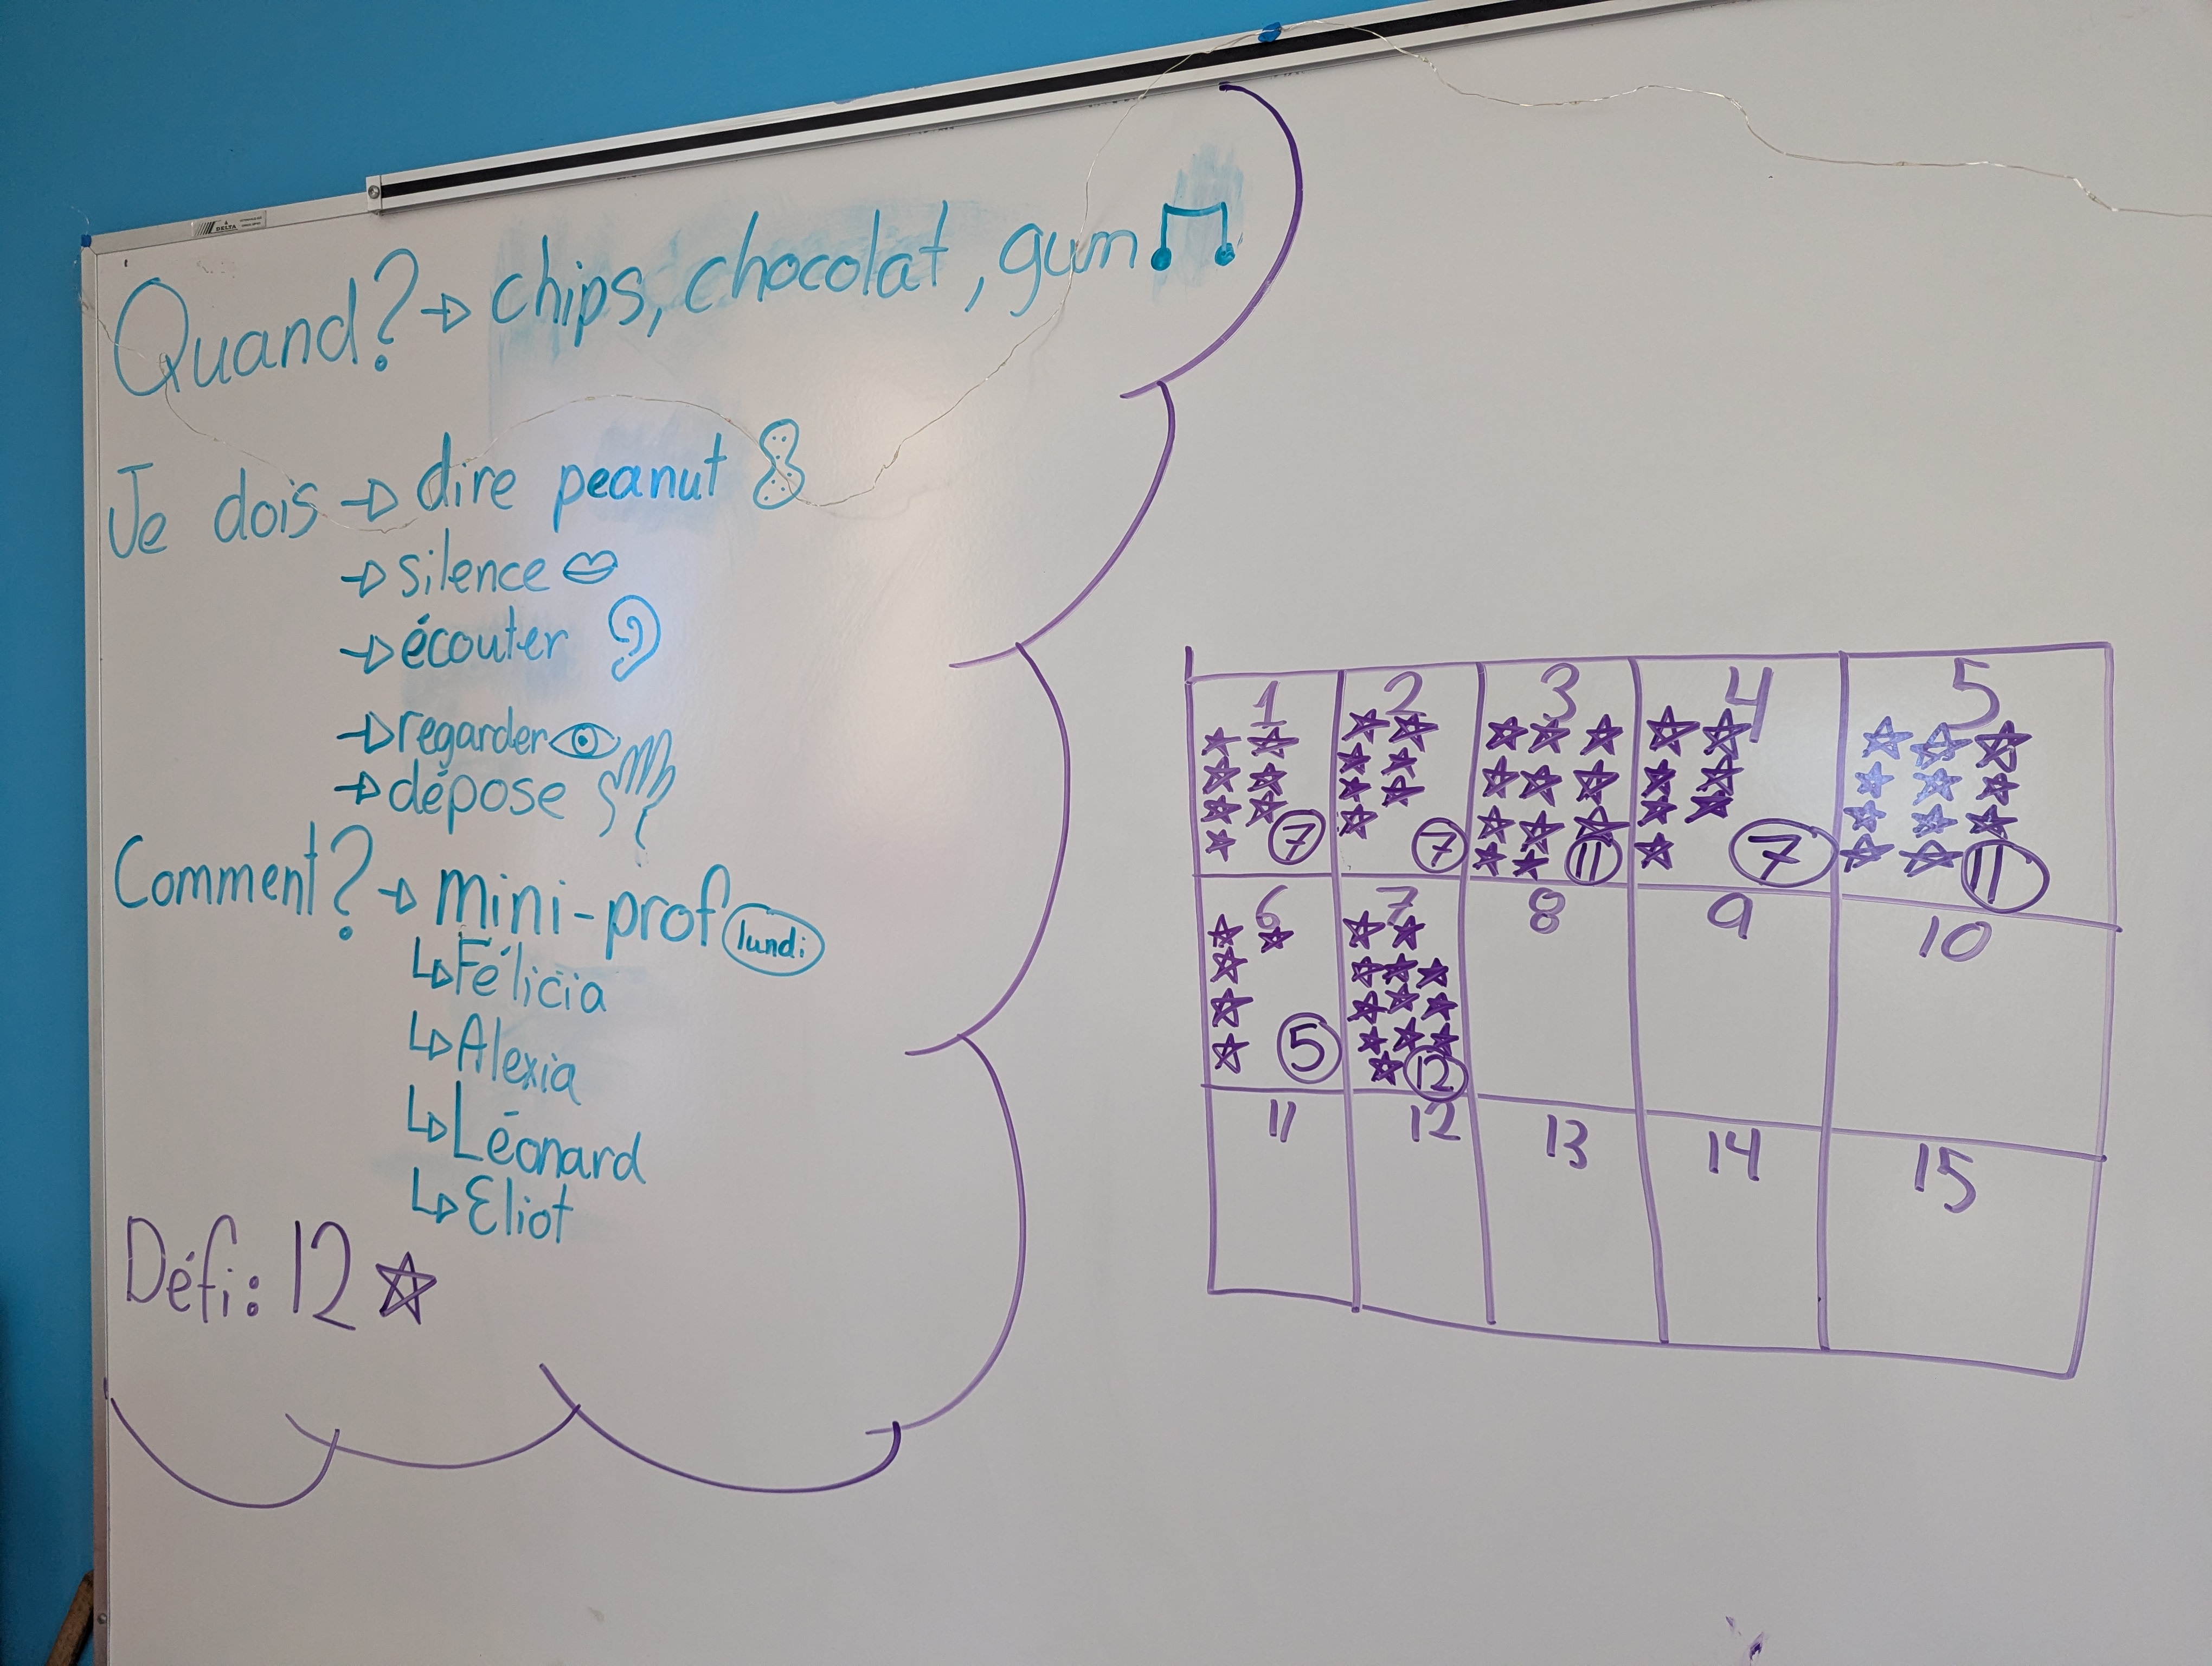 DELTA
Quand? → chips, chocolat, gum
Je dois → dire peanut
→ silence
→ écouter
→ regarder
→ dépose
Comment? → mini-prof lundi
↳ Félicia
↳ Alexia
↳ Léonard
↳ Eliot
Défi: 12 ☆
1 2 3 4 5
7 7 11 7 11
6 7 8 9 10
5 12
11 12 13 14 15